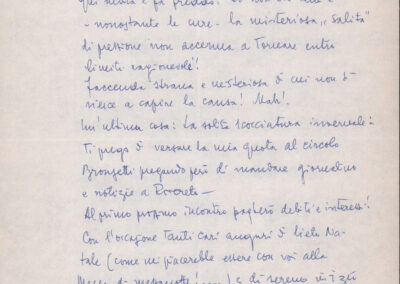 qui nevica e fa freddo!
- nonostante le cure - la misteriosa "salita"
di pressione non accenna a tornare entro
limiti ragionevoli!
Faccenda strana e misteriosa di cui non si
riesce a capire la causa! Mah!
Un'ultima cosa: La solita scocciatura invernale:
Ti prego di versare la mia quota al circolo
Bronzetti pregando però di mandare giornalino
e notizie a Rovereto -
Al primo prossimo incontro pagherò debiti e interessi!
Con l'occasione tanti cari auguri di lieto Na-
tale (come mi piacerebbe essere con voi alla
Messa di mezzanotte! ....) e di sereno